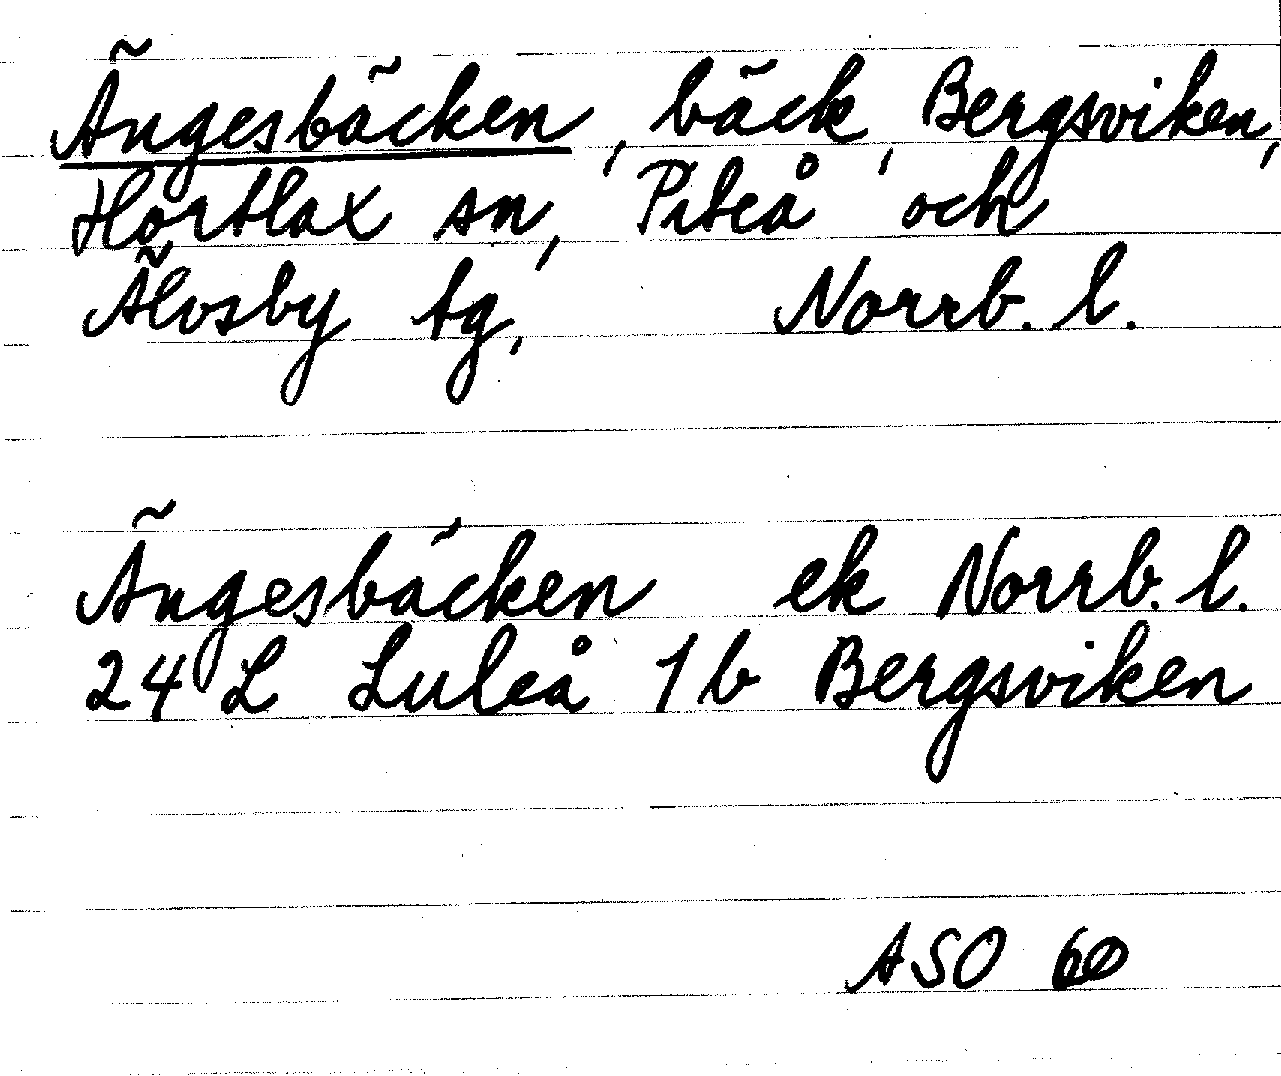 Ängesbäcken, bäck, Bergsviken,
Hortlax sn, Piteå och
Älvsby tg, Norrb. l.
Ängesbäcken ek Norrb. l.
24 L Luleå 1b Bergsviken
ASO 60